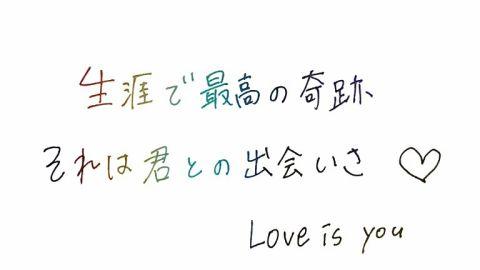 生涯で最高の奇跡
それは君との出会いさ ♡
Love is you